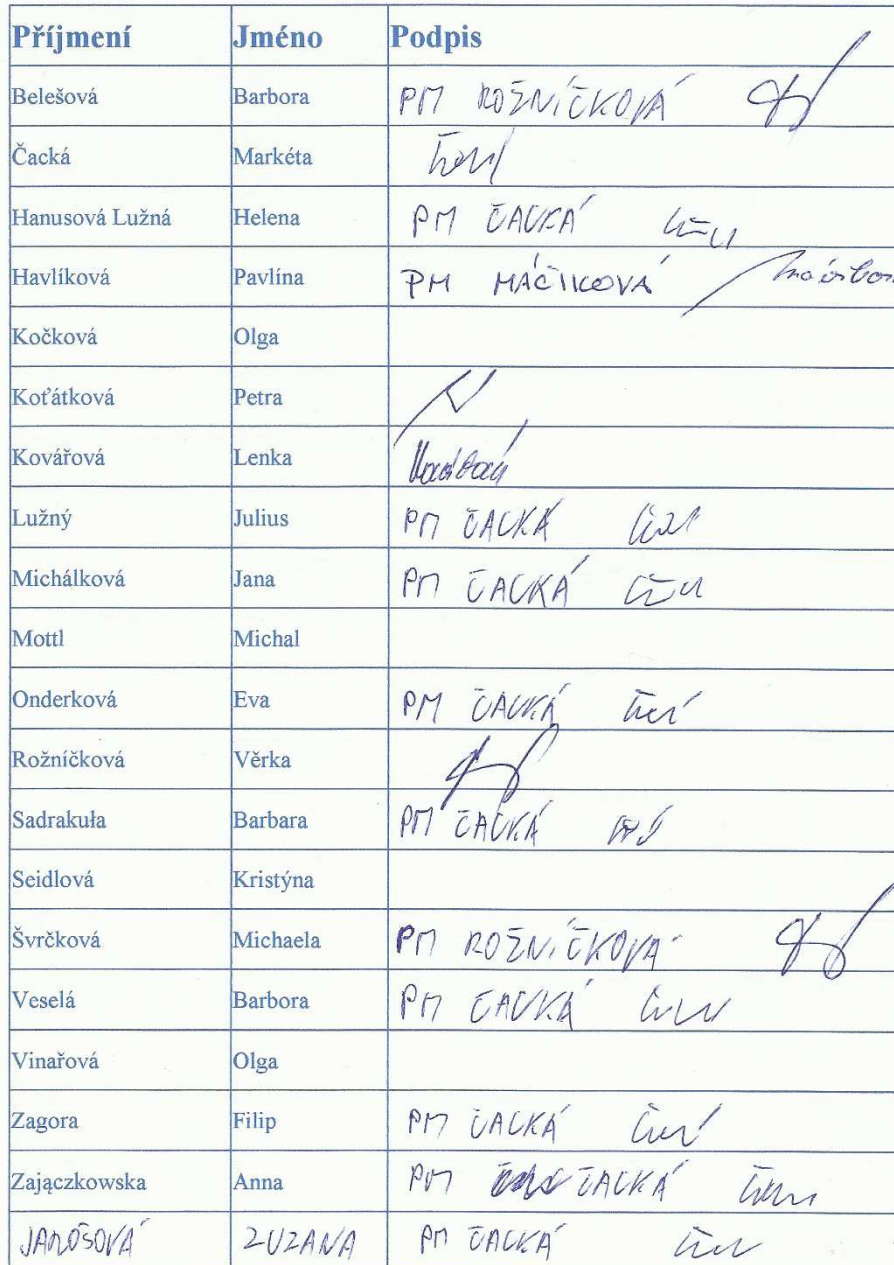 Příjmení Jméno Podpis
Belešová Barbora PM ROŽNÍČKOVÁ
Čacká Markéta
Hanusová Lužná Helena PM ČACKÁ
Havlíková Pavlína PM MÁČIKOVÁ
Kočková Olga
Koťátková Petra
Kovářová Lenka
Lužný Julius PM ČACKÁ
Michálková Jana PM ČACKÁ
Mottl Michal
Onderková Eva PM ČACKÁ
Rožníčková Věrka
Sadrakuła Barbara PM ČACKÁ
Seidlová Kristýna
Švrčková Michaela PM ROŽNÍČKOVÁ
Veselá Barbora PM ČACKÁ
Vinařová Olga
Zagora Filip PM ČACKÁ
Zajączkowska Anna PM ČACKÁ
JANOŠOVÁ ZUZANA PM ČACKÁ